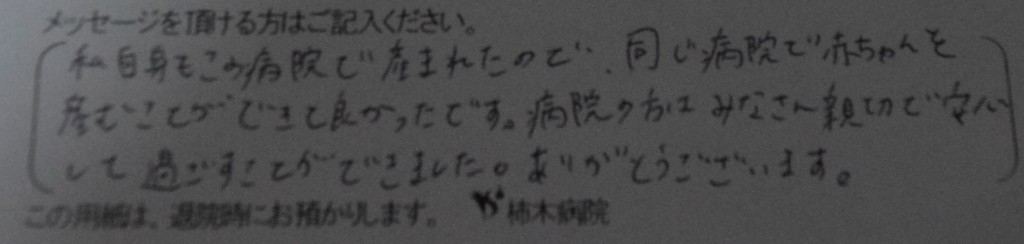 メッセージを頂ける方はご記入ください。
私自身もこの病院で産まれたので、同じ病院で赤ちゃんを
産むことができて良かったです。病院の方はみなさん親切で安心
して過ごすことができました。ありがとうございます。
この用紙は、退院時にお預かりします。 柿木病院